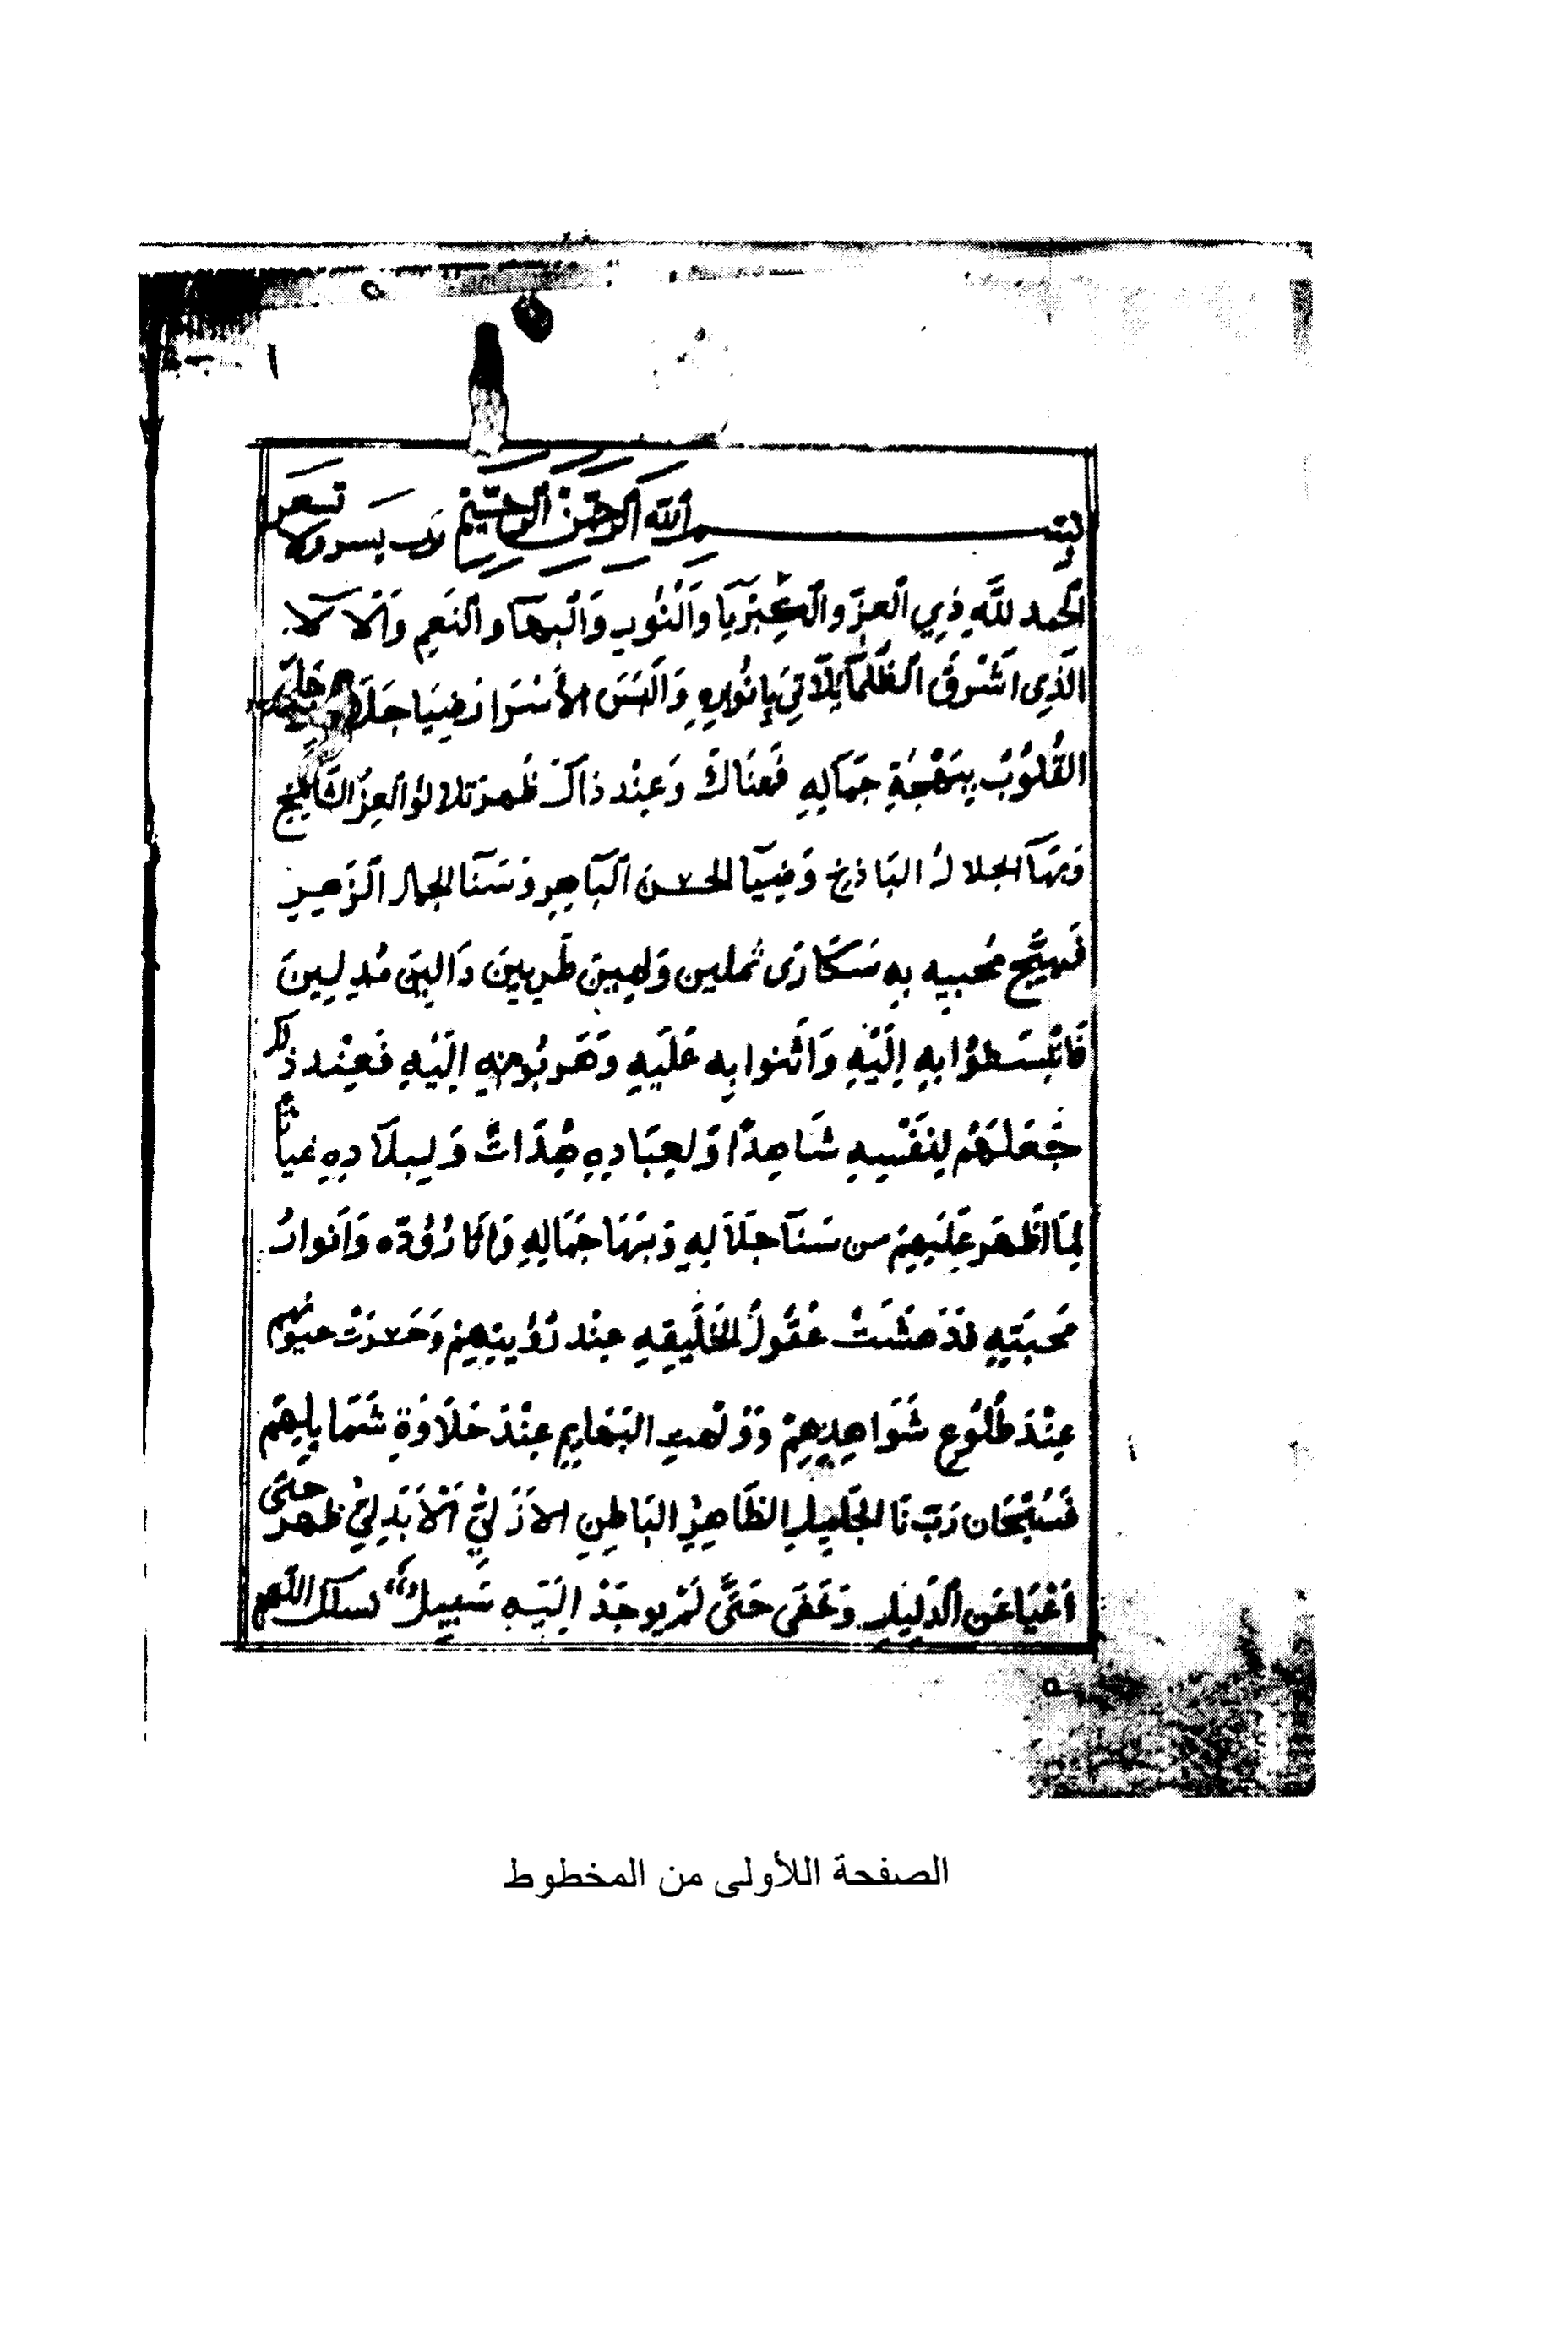 ١
بسم الله الرحمن الرحيم رب يسر ولا تعسر
الحمد لله ذِي العِزّ والكِبْرِيَآ وَالنُّورِ وَالبَهَآ والنَعِمِ وَالْآلآ
الَّذِي اشْرَقَ الظَلْمَآ بِأنْوَارِهِ وَأَلْبَسَ الأَسْرَارَ ضِيَا جَلَالِهِ
القُلُوبُ بِبَهْجَةِ جَمَالِهِ فَعِنَاكَ وَعِنْد ذاكَ ظَهرَ تلالؤ العِزّ الشَّامِخ
وَبَهَآ الجلالُ البَاذِخِ وَضِيَآ الحسن البَاهِرِ وَسَنَآ الجمال الزَهِرِ
فَهَيَّج مُحبيه بِهِ سَكَارَى ثملين وَلِهِينَ طَرِبِينَ دَالِينَ مُدِلِينَ
فَانْبَسَطُوا بِهِ إِلَيْهِ وَاثَنوا بِه عَلَيهِ وَهَرَبُو مِنهِ اِلَيْهِ فَعِنْد ذلك
جَعَلَهُمْ لِنَفْسِهِ شَاهِدًا وَلعِبَادِهِ هُدَاتٌ وَلِبلَادِهِ غياثًا
لِمَا اظْهَرَ عَلَيهِمْ من سَنَآ جلَالِهِ وَبَهَا جَمَالِهِ وَاثَارُ وُدّه وَاَنوارُ
مَحبَتِهِ فدَهشَتْ عُقُولُ الخَلِيقِهِ عِنْد رُؤيتِهِمْ وَحَسرَتْ عيونهم
عِنْدَ طُلُوعِ شَوَاهِدِهِمْ وَوَلهت البَهَايِمِ عِنْدَ حَلَاوَةِ شَمَايِلِهِمْ
فَسُبْحَان رَبّنَا الجَلِيلِ الظَاهِرِ البَاطِنِ الاَزَلِيِّ الْاَبَدِلِيّ ظهر حتى
اَغْيَا عَن الدَلِيلِ وَخَفَى حَتَّى لَمْ يوجَدْ اِلَيْهِ سَبِيلٌ نسلك اللهم
الصفحة اللأولى من المخطوط